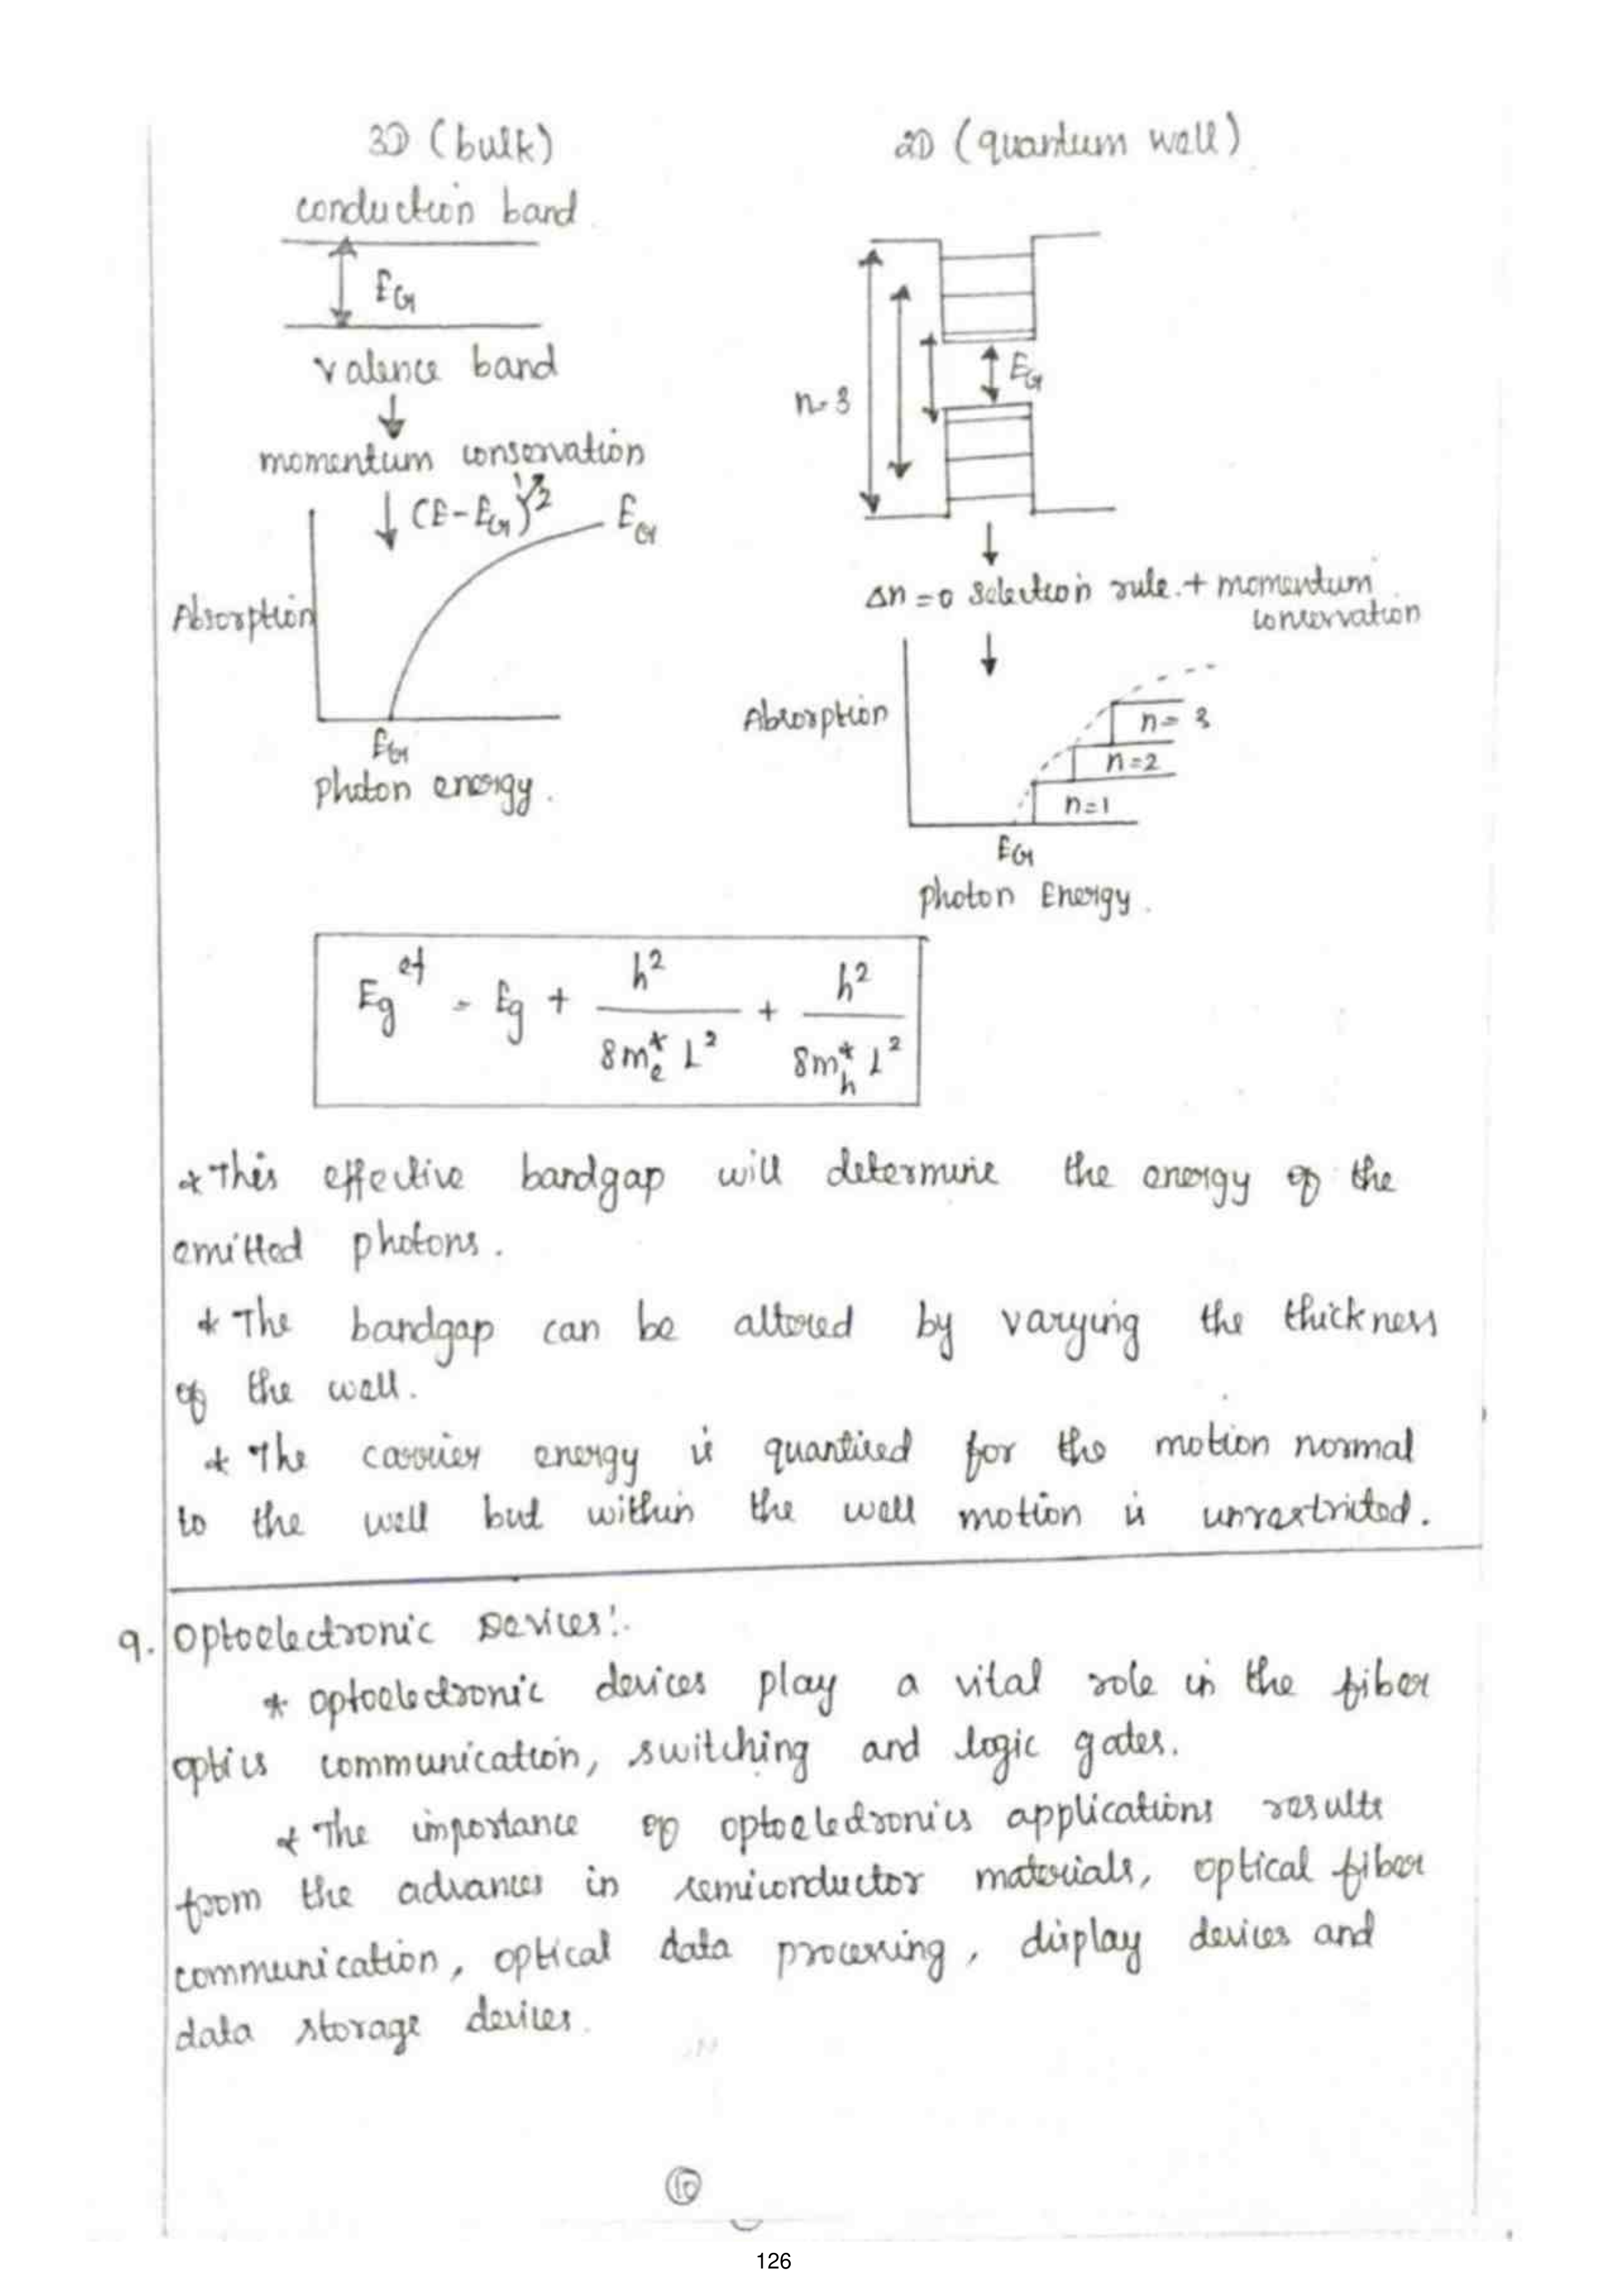 3D (bulk)
conduction band
EG
valence band
momentum conservation
(E-EG)^1/2
EG
Absorption
EG
photon energy.
2D (quantum well)
n=3
EG
Δn=0 selection rule.+ momentum
conservation
Absorption
n=3
n=2
n=1
EG
photon Energy.
Eg^ef = Eg + h²/8me* L² + h²/8mh* L²
* This effective bandgap will determine the energy of the
emitted photons.
* The bandgap can be altered by varying the thickness
of the well.
* The carrier energy is quantised for the motion normal
to the well but within the well motion is unrestricted.
9. Optoelectronic Devices:
* optoelectronic devices play a vital role in the fiber
optics communication, switching and logic gates.
* The importance of optoelectronics applications results
from the advances in semiconductor materials, optical fiber
communication, optical data processing, display devices and
data storage devices.
10
126